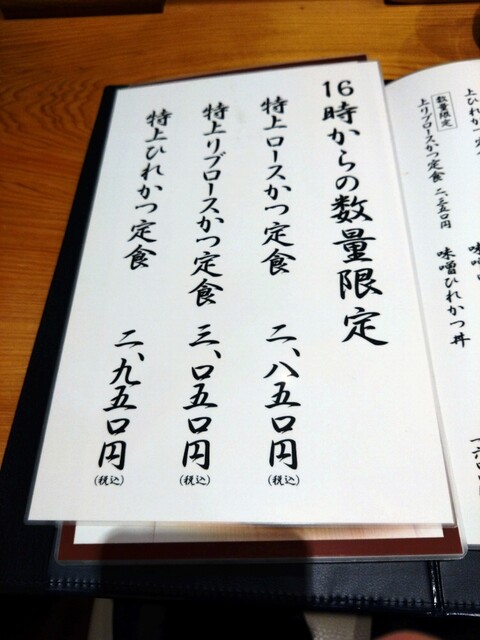 16時からの数量限定
特上ロースかつ定食 二、八五〇円(税込)
特上リブロースかつ定食 三、〇五〇円(税込)
特上ひれかつ定食 二、九五〇円(税込)
上ひれかつ定
数量限定
上リブロースかつ定食 二、三五〇円
味噌ひれかつ丼